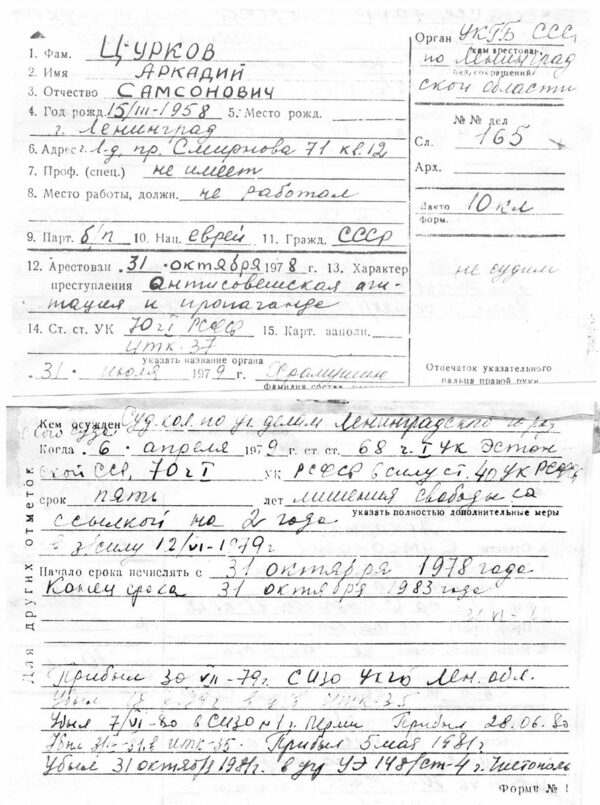 1. Фам. Цурков
2. Имя Аркадий
3. Отчество Самсонович
4. Год рожд. 15/III-1958 5. Место рожд.
г. Ленинград
6. Адрес г. Л-д, пр. Смирнова 71 кв. 12
7. Проф. (спец.) не имеет
8. Место работы, должн. не работал
9. Парт. б/п 10. Нац. еврей 11. Гражд. СССР
12. Арестован 31 октября 1978 г. 13. Характер
преступления антисоветская аги-
тация и пропаганде
14. Ст. ст. УК 70 ч I РСФСР 15. Карт. заполн.
итк-37
указать название органа
31 июля 1979 г.
фамилия состав.
Орган УКГБ ССС
(кем арестован,
по Ленинград
без сокращений)
ской области
№№ дел
Сл. 165
Арх.
Дакто 10 кл
Форм.
не судим
Отпечаток указательного
пальца правой руки
Для других отметок
Кем осужден Суд. кол. по уг делам Ленинградского гор
ского суда
Когда 6 апреля 1979 г. ст. ст. 68 ч. I УК Эстон
ской ССР, 70 ч I УК РСФСР в силу ст. 40 УК РСФСР
срок пять лет лишения свободы со
ссылкой на 2 года указать полностью дополнительные меры
в з/силу 12/VI-1979г
Начало срока исчислять с 31 октября 1978 года
Конец срока 31 октября 1983 года
Прибыл 30 VII-79г. СИЗО УКГБ Лен. обл.
Убыл в итк-35
Убыл 7/VI-80 в СИЗО №1 г. Перми Прибыл 28.06.80
Убыл в итк-35. Прибыл 5 мая 1981г
Убыл 31 октября 1981г. в уч УЭ 148/ст-4 г. Чистополь
Форма № 1